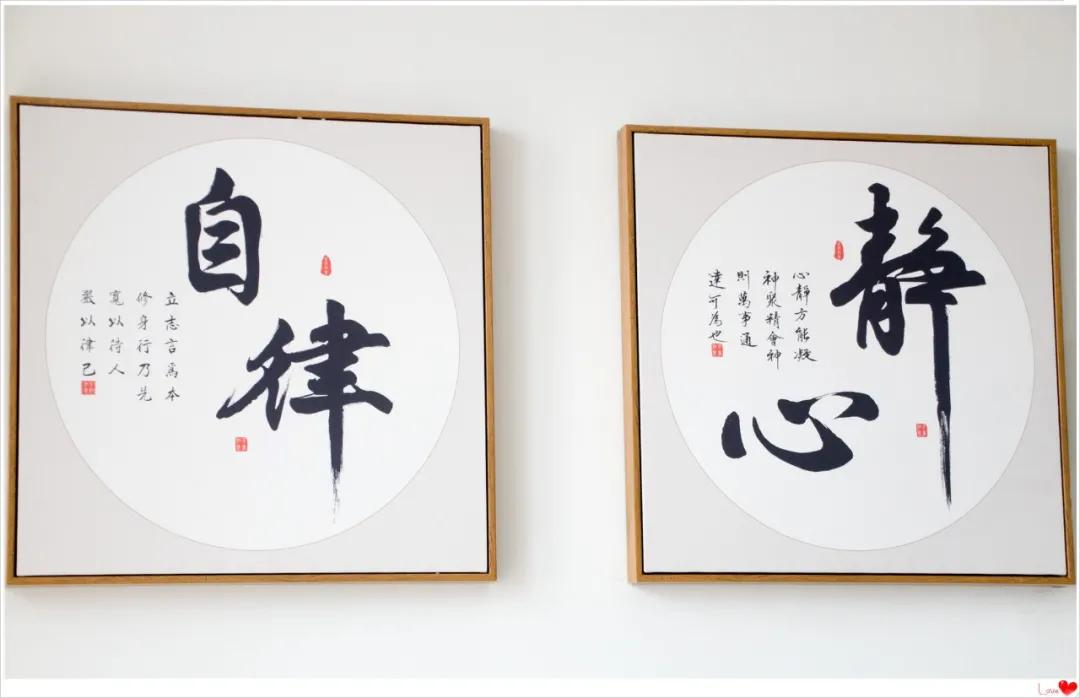 自律
立志言為本
修身行乃先
寬以待人
嚴以律己
靜心
心靜方能凝
神聚精會神
則萬事通
達可為也
Love